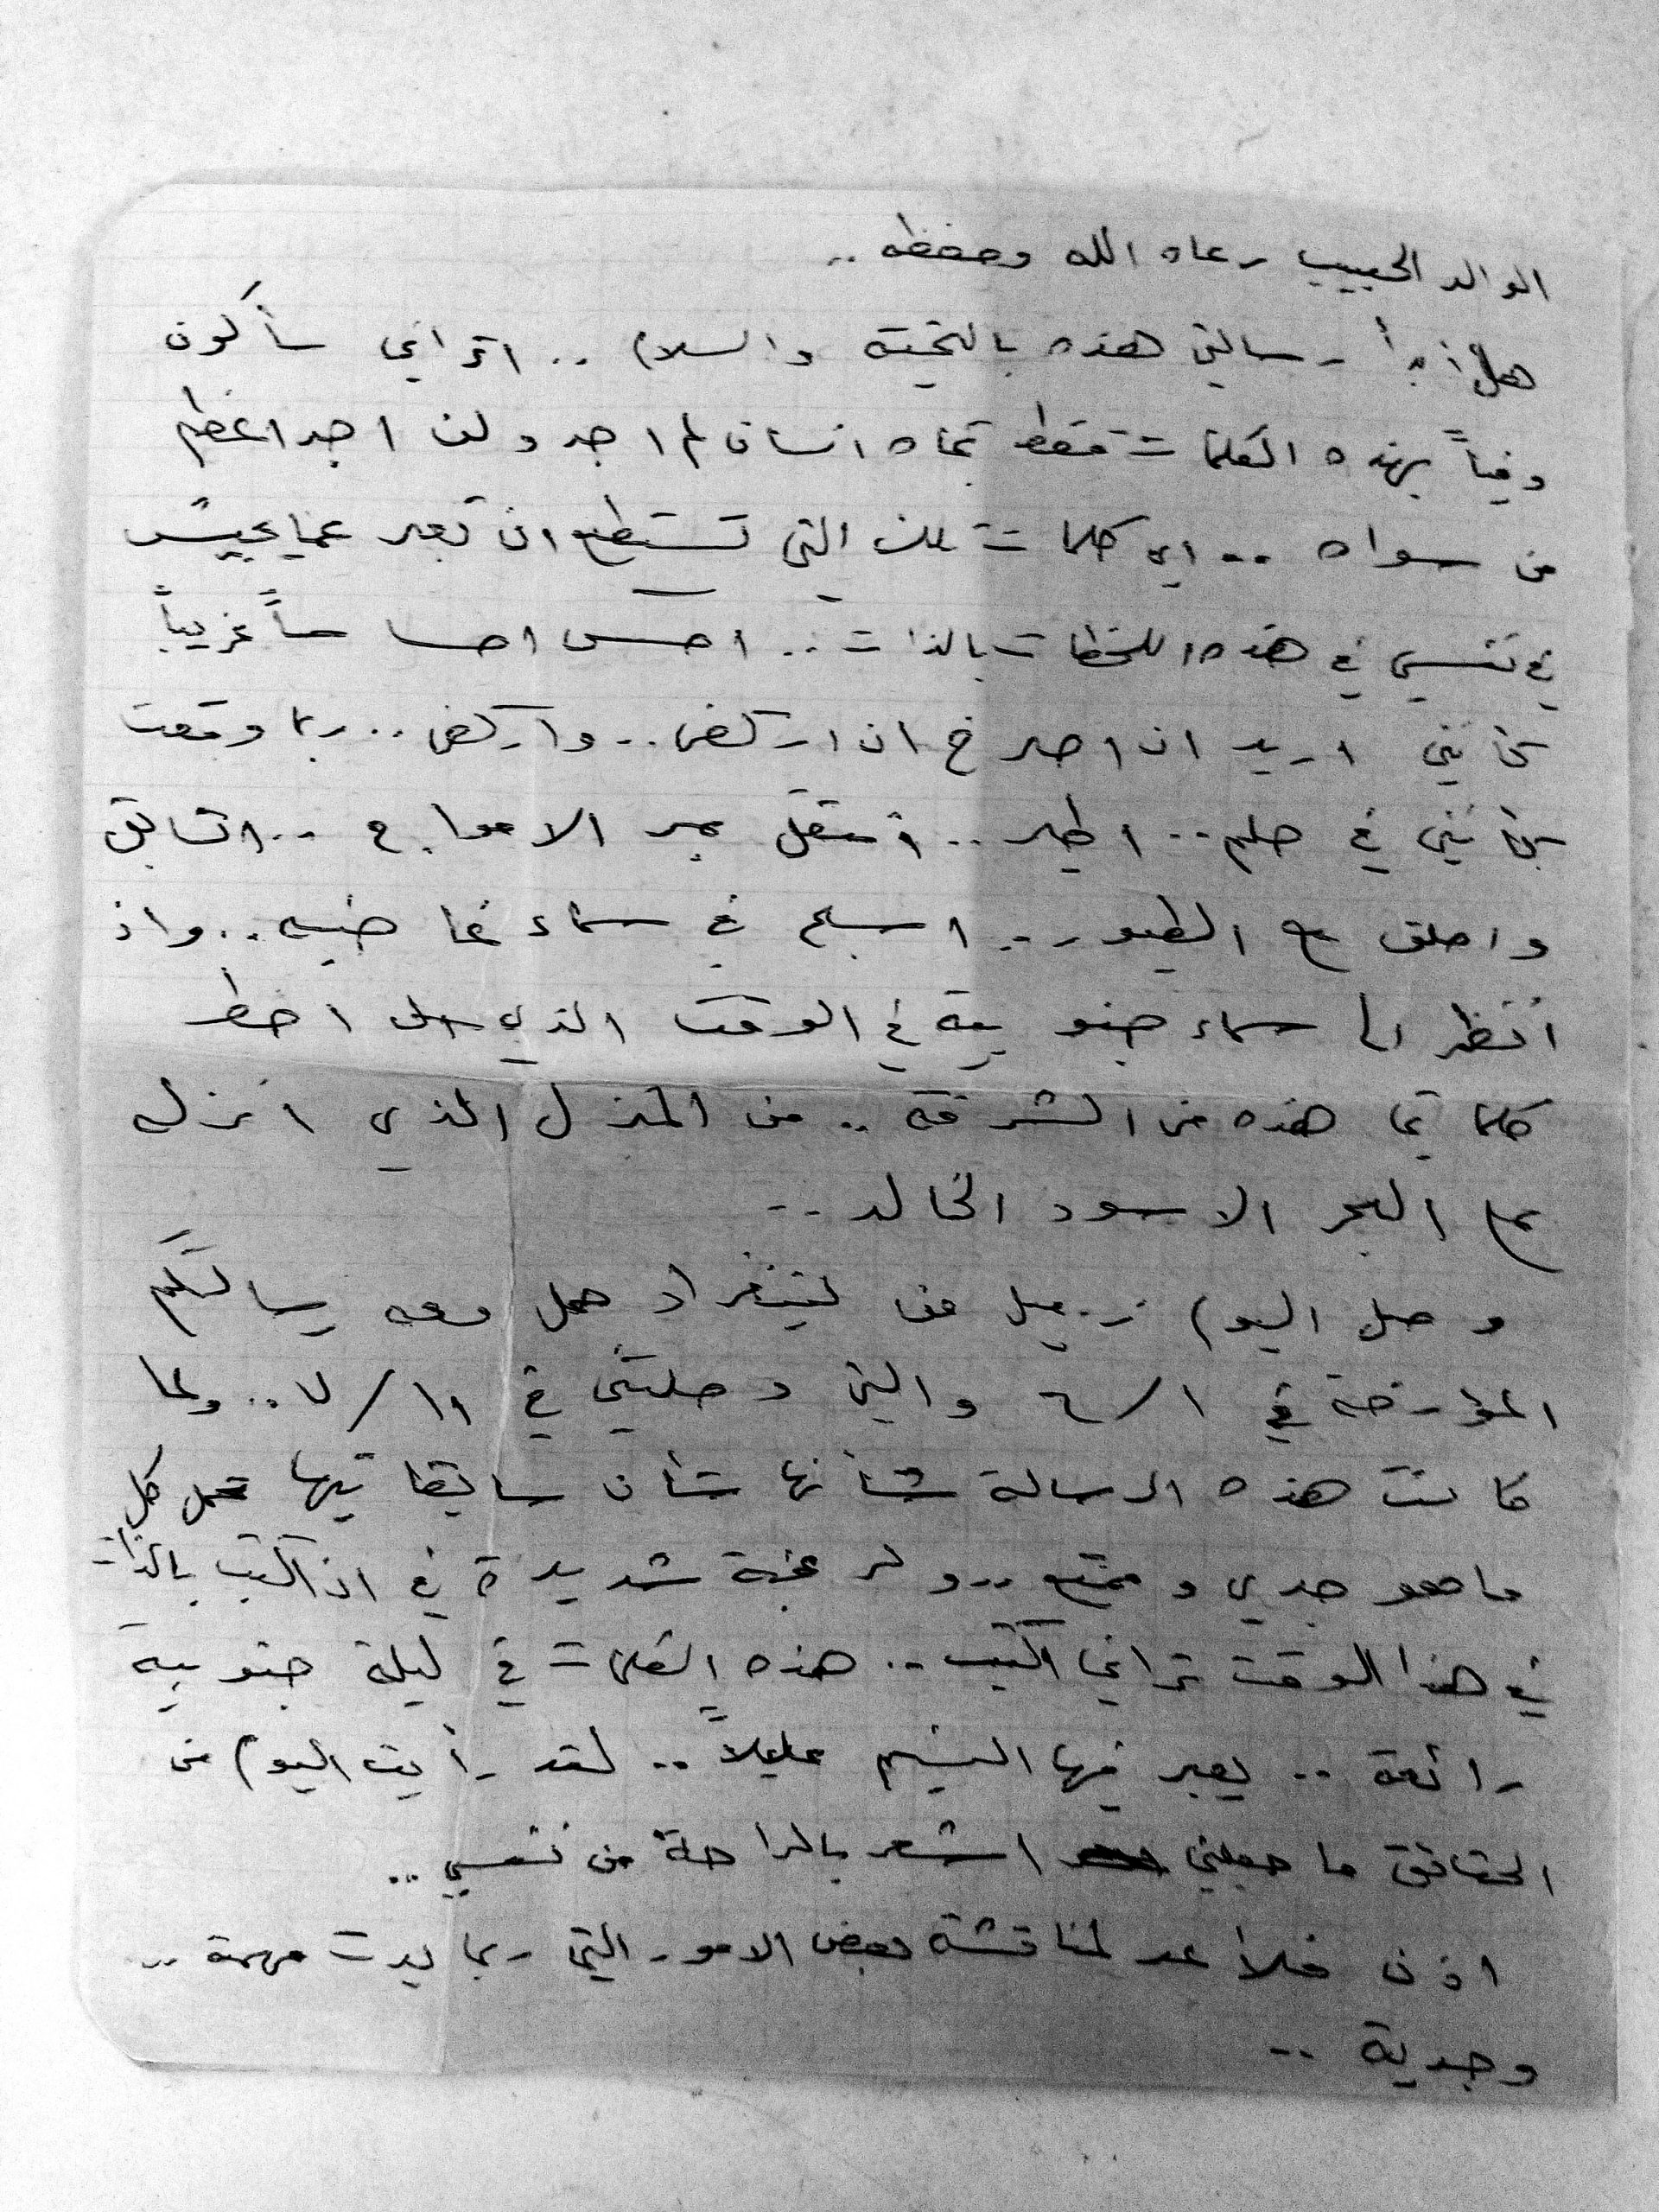 الوالد الحبيب رعاه الله وحفظه ..
هل ابدأ رسالتي هذه بالتحية والسلام .. اتراني سأكون
وفياً بهذه الكلمات فقط تجاه انسان لم اجد ولن اجد اعظم
من سواه .. اي كلمات تلك التي تستطيع ان تعبر عما يجيش
في نفسي في هذه اللحظات بالذات .. احس احساساً غريباً
كأنني اريد ان اصرخ ان اركض .. واركض .. ربما وقعت
كأنني في حلم .. اطير .. أنتقل عبر الامواج .. اتسابق
واحلق مع الطيور .. اسبح في سماء غامضيه .. واذ
أنظر الى سماء جنوبية في الوقت الذي اخط
كلماتي هذه من الشرفة .. من المنزل الذي انزله
على البحر الاسود الخالد ..
وصل اليوم زميل من لينينغراد حمل معه رسالتكم
المؤرخة في ٦/١ والتي وصلتني في ٧/١١ .. ولما
كانت هذه الرسالة شأنها شأن سابقاتها تحمل كل
ما هو جدي وممتع .. ولرغبة شديدة في ان اكتب بالذات
في هذا الوقت تراني اكتب .. هذه الكلمات في ليلة جنوبية
رائعة .. يعبر فيها النسيم عليلاً .. لقد رأيت اليوم من
الحقائق ما جعلني اشعر بالراحة من نفسي ..
اذن فلأعد لمناقشة بعض الامور التي ربما بدت مهمة ..
وجدية ..